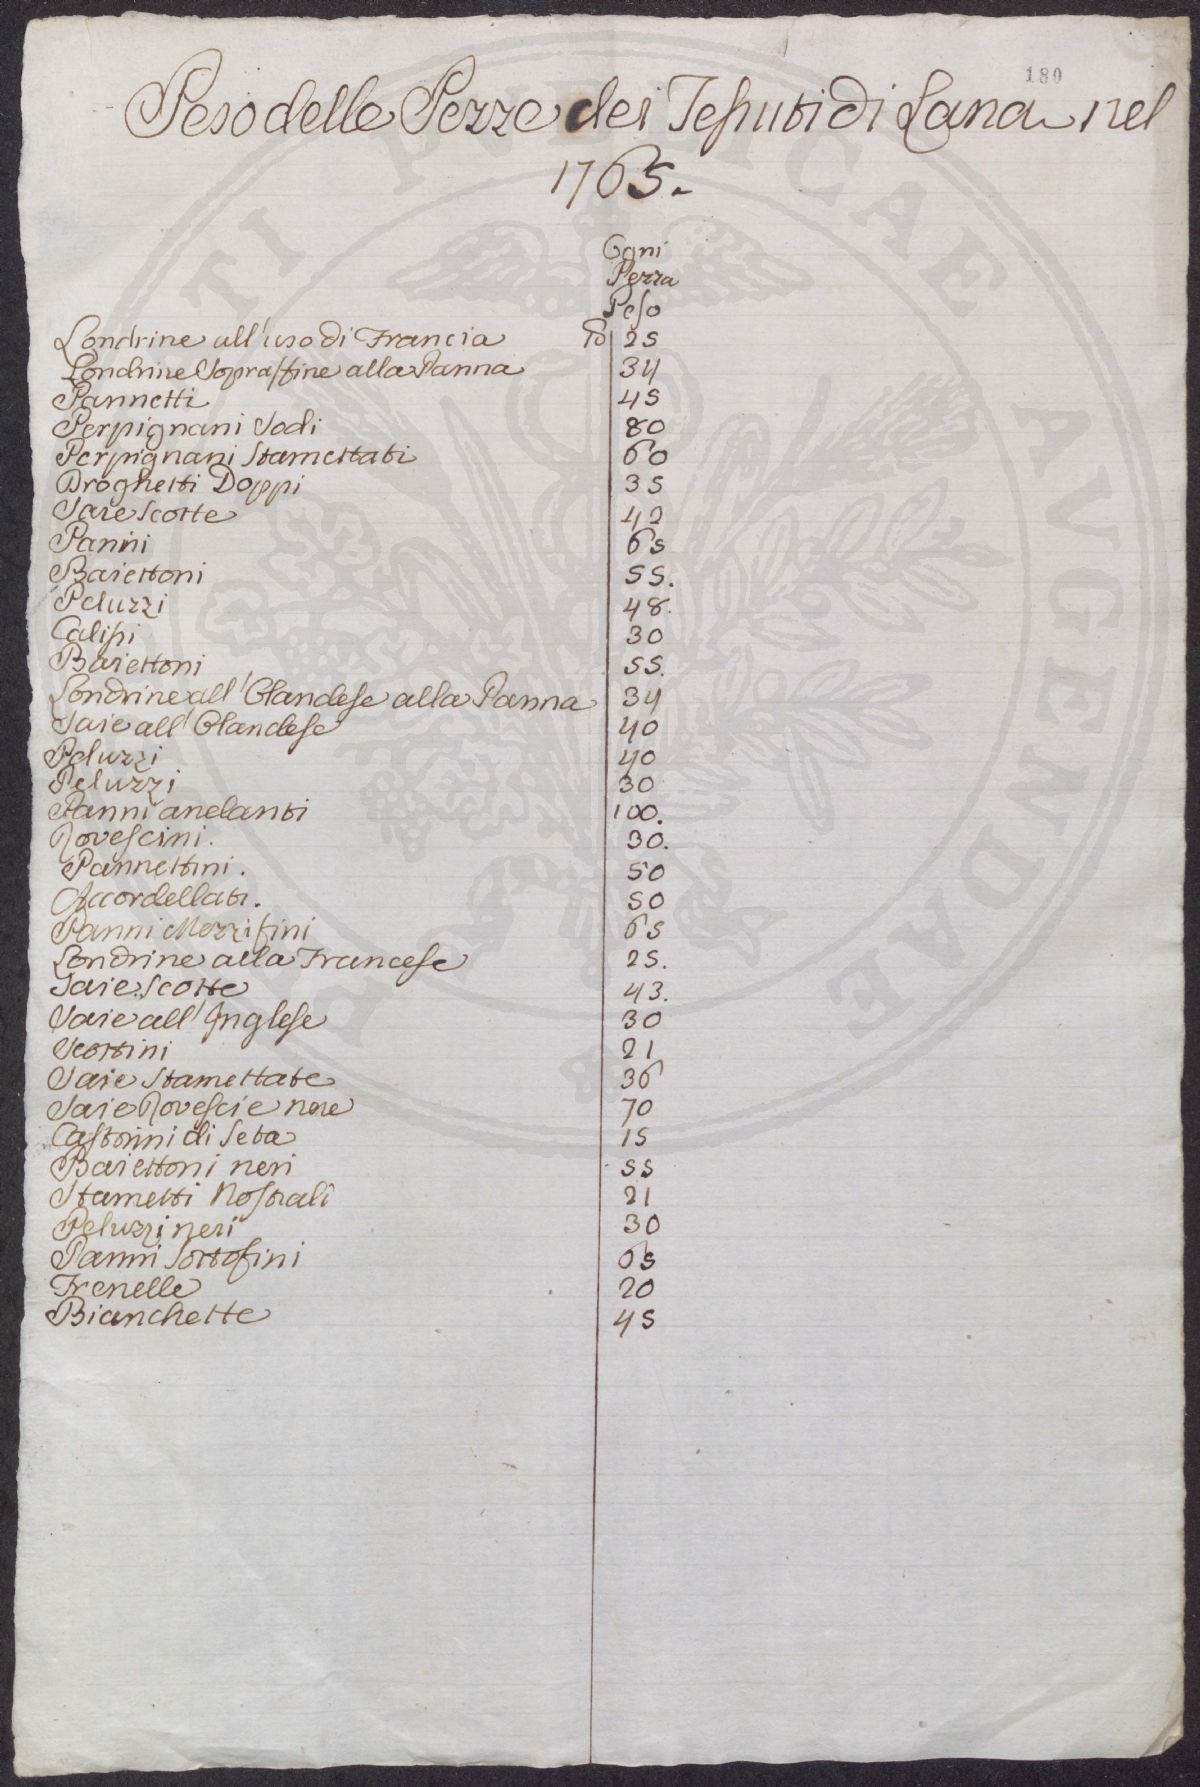 180
Peso delle Pezze dei Tessuti di Lana nel
1765.
Ogni
Pezza
Peso
Londrine all'uso di Francia 25
Londrine Sopraffine alla Panna 34
Pannetti 45
Perpignani Sodi 80
Perpignani Stamettati 60
Droghetti Doppi 35
Saie Scotte 42
Panni 65
Baiettoni 55.
Peluzzi 48.
Calissi 30
Baiettoni 55.
Londrine all'Olandese alla Panna 34
Saie all'Olandese 40
Peluzzi 40
Peluzzi 30
Panni anelanti 100.
Rovescini. 30.
Pannettini. 50
Accordellati. 50
Panni Mezzifini 65
Londrine alla Francese 25.
Saie Scotte 43.
Saie all'Inglese 30
Scottini 21
Saie Stamettate 36
Saie Rovescie nere 70
Castorini di Seta 15
Baiettoni neri 55
Stametti Nostrali 21
Peluzzi neri 30
Panni Sottofini 65
Frenelle 20
Bianchette 45